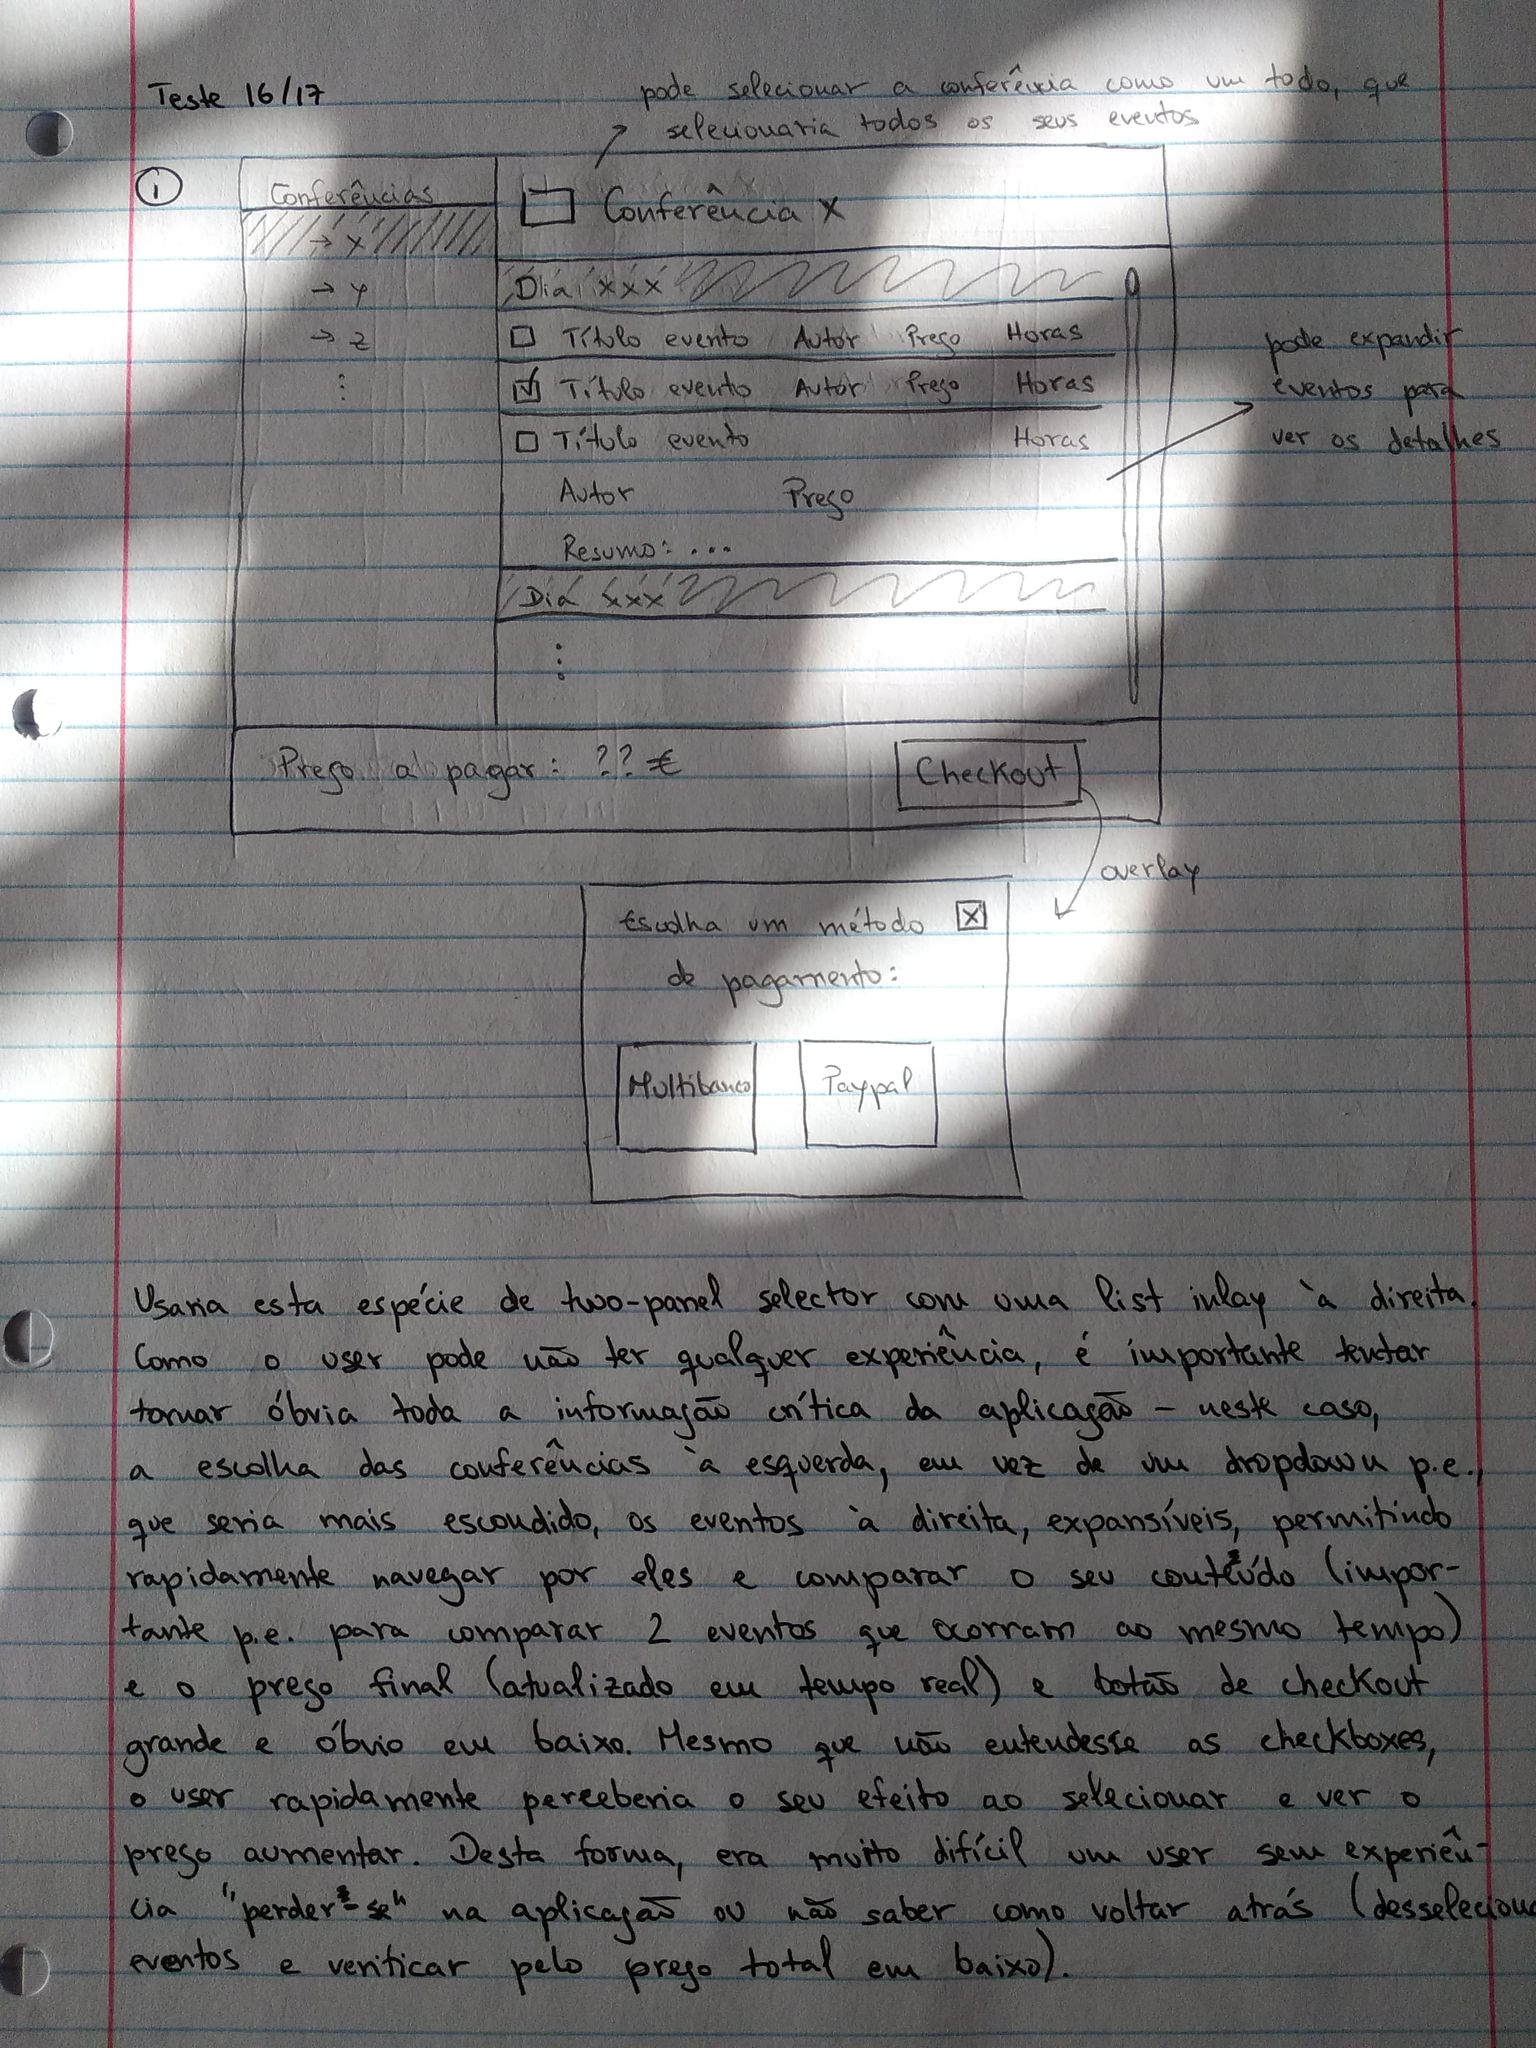 Teste 16/17
pode selecionar a conferência como um todo, que
selecionaria todos os seus eventos
1
Conferências
→ X
→ Y
→ Z
⋮
Conferência X
Dia xxx
Título evento Autor Preço Horas
Título evento Autor Preço Horas
Título evento Horas
Autor Preço
Resumo: ...
Dia xxx
⋮
pode expandir
eventos para
ver os detalhes
Preço a pagar: ??€
Checkout
overlay
Escolha um método X
de pagamento:
Multibanco Paypal
Usaria esta espécie de two-panel selector com uma list inlay à direita.
Como o user pode não ter qualquer experiência, é importante tentar
tornar óbvia toda a informação crítica da aplicação - neste caso,
a escolha das conferências à esquerda, em vez de um dropdown p.e.,
que seria mais escondido, os eventos à direita, expansíveis, permitindo
rapidamente navegar por eles e comparar o seu conteúdo (impor-
tante p.e. para comparar 2 eventos que ocorram ao mesmo tempo)
e o preço final (atualizado em tempo real) e botão de checkout
grande e óbvio em baixo. Mesmo que não entendesse as checkboxes,
o user rapidamente perceberia o seu efeito ao selecionar e ver o
preço aumentar. Desta forma, era muito difícil um user sem experiên-
cia "perder-se" na aplicação ou não saber como voltar atrás (desseleciona
eventos e verificar pelo preço total em baixo).